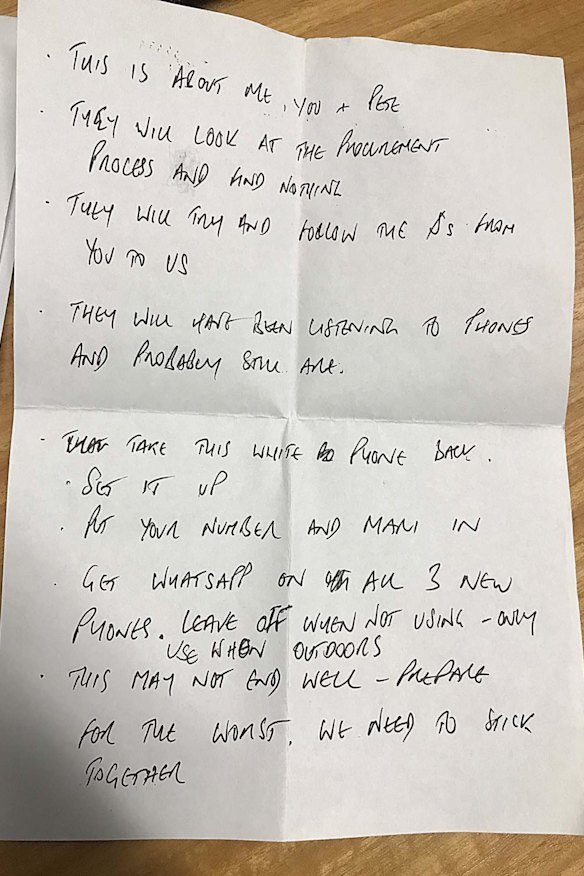 · THIS IS ABOUT ME, YOU + PETE
· THEY WILL LOOK AT THE PROCUREMENT
PROCESS AND FIND NOTHING
· THEY WILL TRY AND FOLLOW THE $s FROM
YOU TO US
· THEY WILL HAVE BEEN LISTENING TO PHONES
AND PROBABLY STILL ARE.
· TAKE THIS WHITE PHONE BACK.
· SET IT UP
· PUT YOUR NUMBER AND MARI IN
· GET WHATSAPP ON ALL 3 NEW
PHONES. LEAVE OFF WHEN NOT USING – ONLY
USE WHEN OUTDOORS
· THIS MAY NOT END WELL – PREPARE
FOR THE WORST. WE NEED TO STICK
TOGETHER